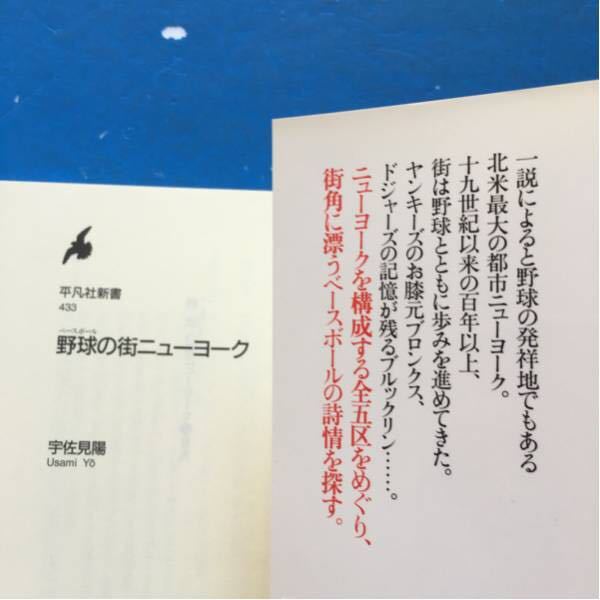 平凡社新書
433
ベースボール
野球の街ニューヨーク
宇佐見陽
Usami Yō
一説によると野球の発祥地でもある
北米最大の都市ニューヨーク。
十九世紀以来の百年以上、
街は野球とともに歩みを進めてきた。
ヤンキーズのお膝元ブロンクス、
ドジャーズの記憶が残るブルックリン……。
ニューヨークを構成する全五区をめぐり、
街角に漂うベースボールの詩情を探す。